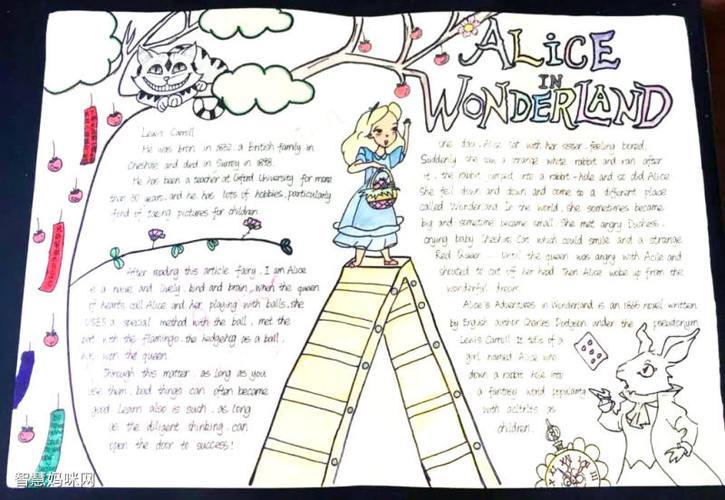 ALiCE
IN
WONDERLAND
Lewis Carroll
He was bron in 1832, a British family in
Cheshire and died in Surrey in 1898.
He has been a teacher at Oxford University for more
than 30 years, and he has lots of hobbies, particularly
fond of taking pictures for children.
After reading this article fairy, I am Alice
is a naive and lively, kind and brain, when the queen
of hearts call Alice and her playing with balls, she
USES a special method with the ball, met the
bat with the flamingo, the hedgehog as a ball,
has won the queen.
Through this matter as long as you
use thum, bad things can often became
good. Learn also is such, as long
as the diligent thinking, can
open the door to success!
One day, Alice sat with her sister, feeling bored.
Suddenly she saw a strange white rabbit and ran after
it, the rabbit jumped into a rabbit-hole and so did Alice.
She fell down and down and come to a different place
called Wonderland. In the world, she sometimes became
big and sometime became small. She met angry Duchess,
crying baby, Cheshire Cat which could smile and a strange
Red Queen ... Until the queen was angry with Aclie and
shouted to cut off her head. Then Alice woke up from the
wonderful dream.
Alice's Adventures in Wonderland is an 1865 novel written
by English author Charles Dodgson under the pseudonym
Lewis Carroll. It tells of a
girl named Alice who
down a rabbit hole into
a fantasy world
with as
children.
智慧妈咪网